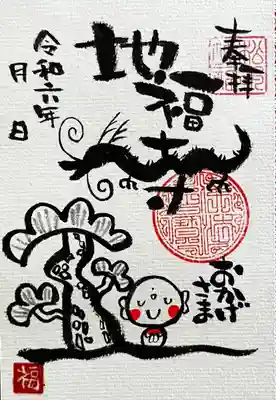 奉拝
地福寺
令和六年
月　日
おかげさま
福